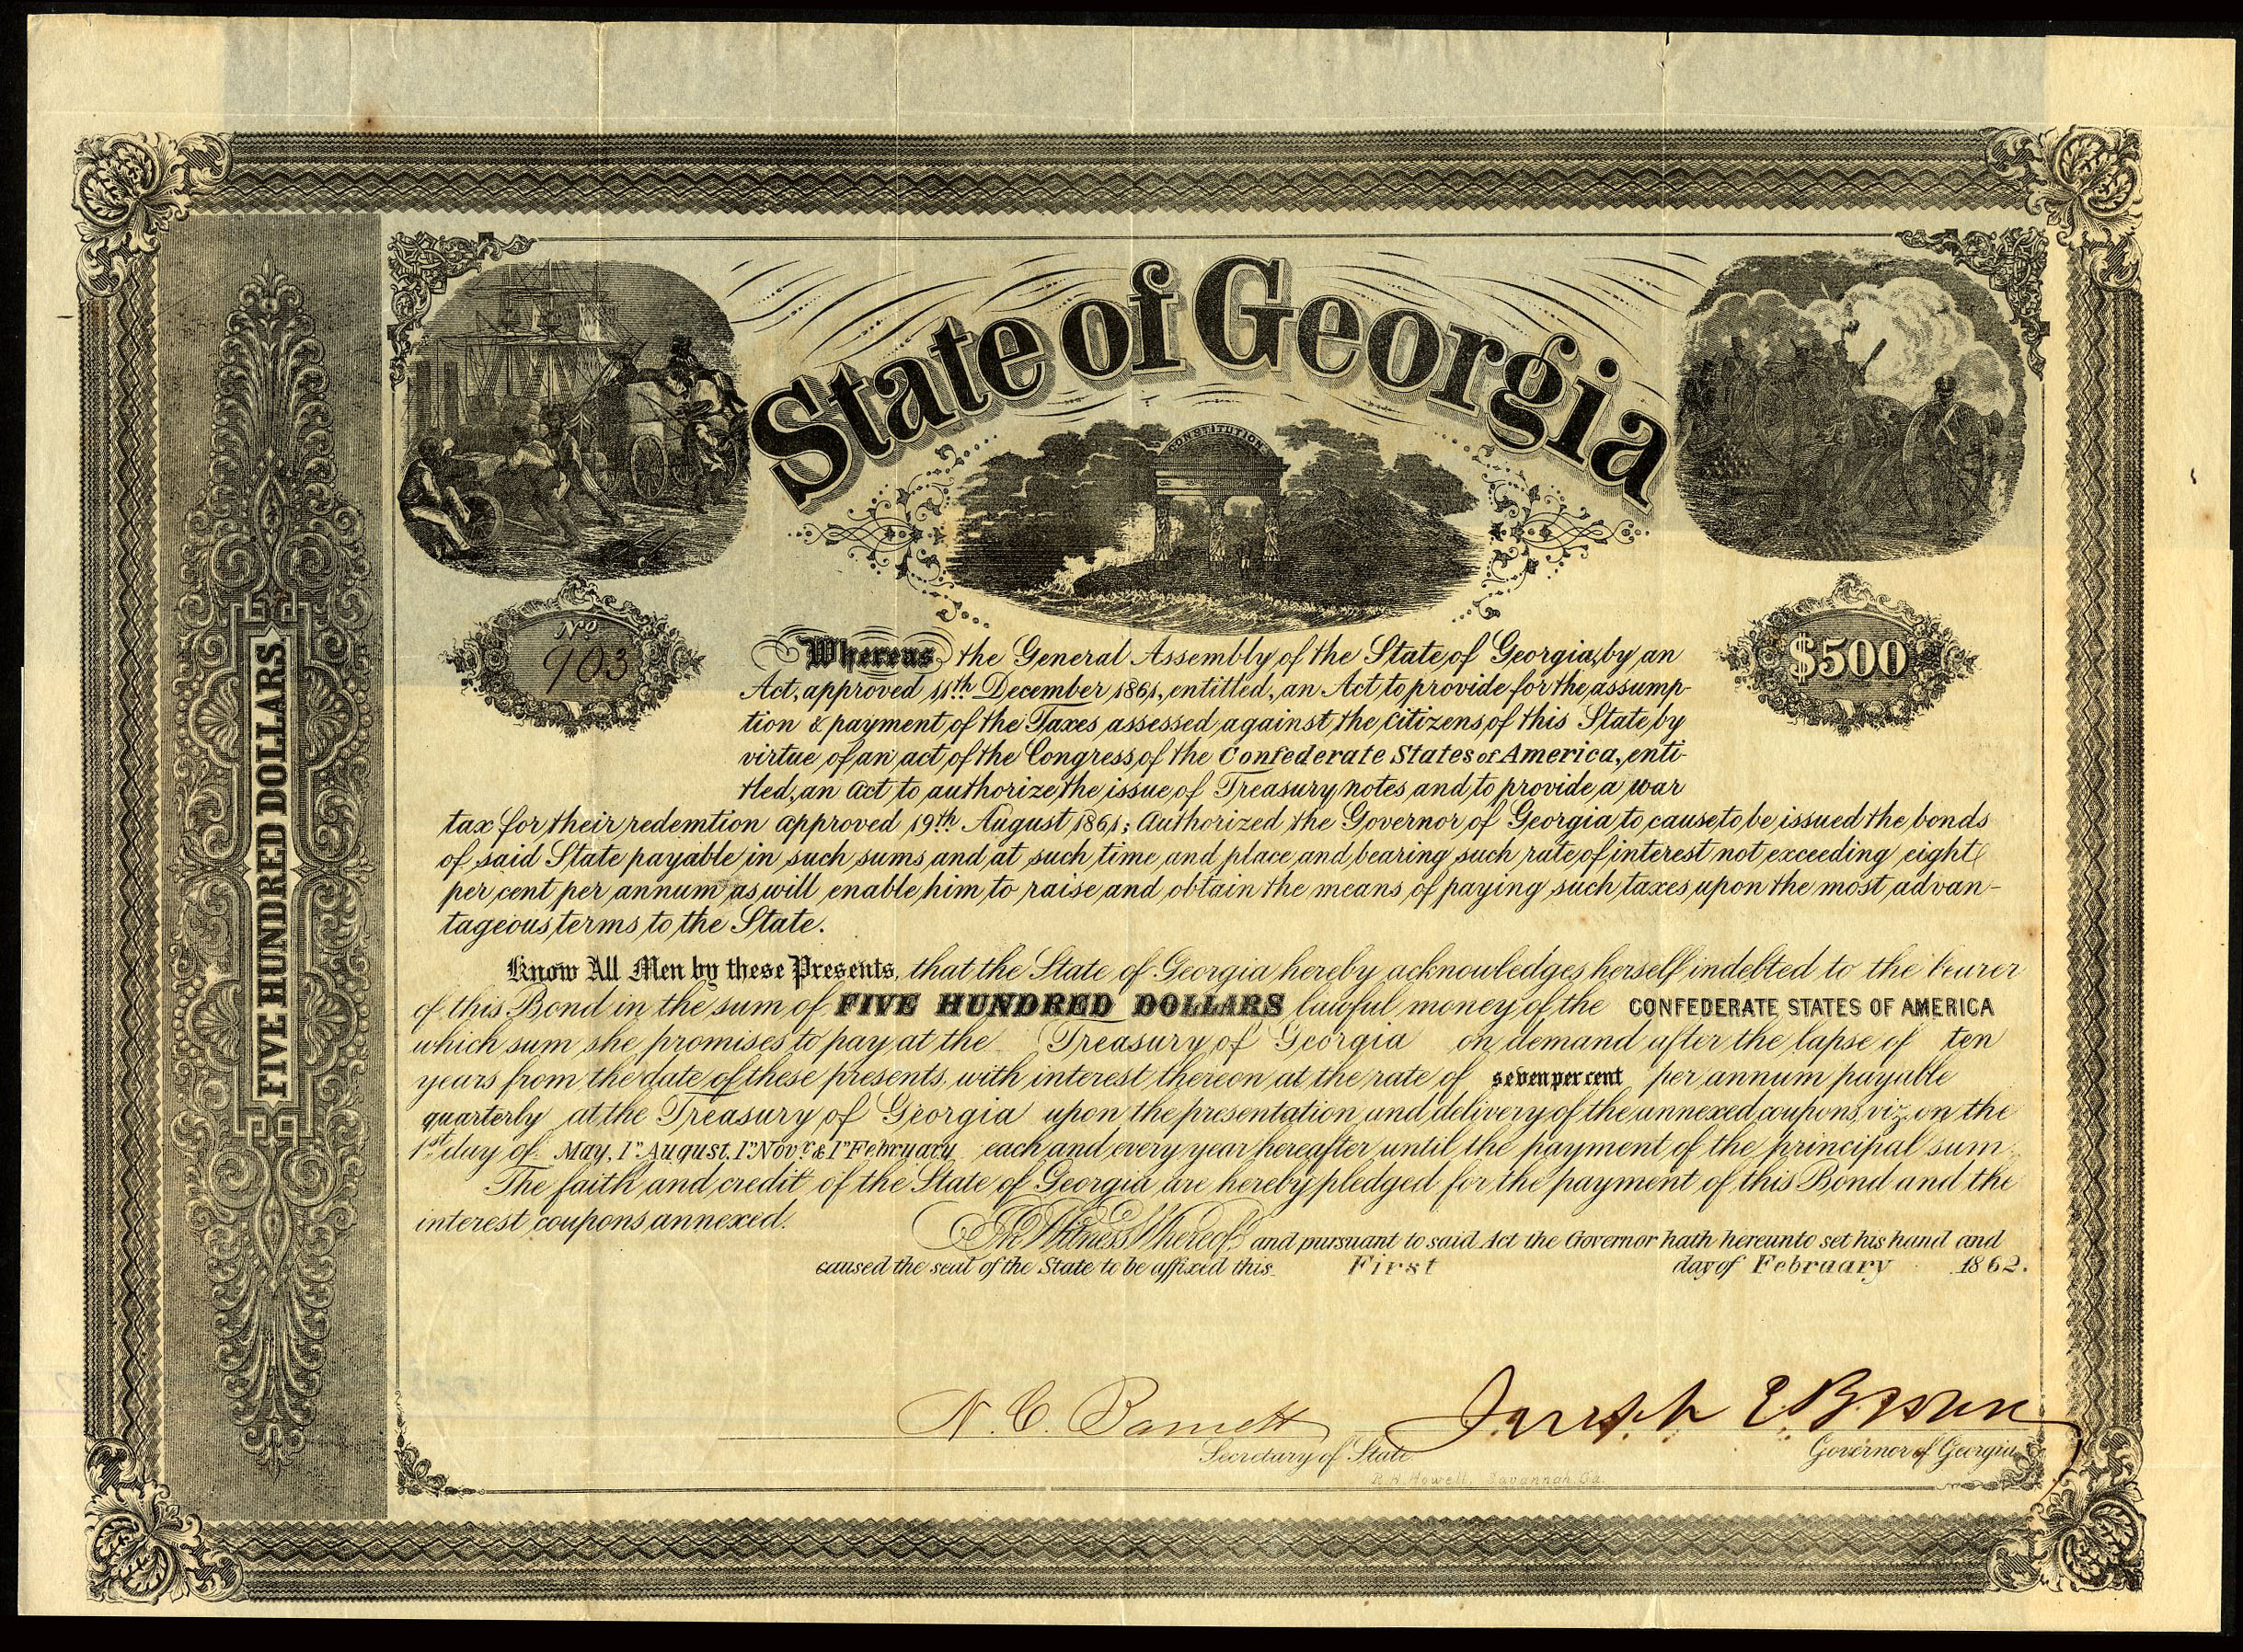 State of Georgia
CONSTITUTION
No
903
$500
FIVE HUNDRED DOLLARS
Whereas, the General Assembly of the State of Georgia, by an
Act, approved 11th December 1861, entitled, an Act, to provide for the assump-
tion & payment of the Taxes assessed against the citizens of this State by
virtue of an act of the Congress of the Confederate States of America, enti-
tled, an act to authorize the issue of Treasury notes and to provide a war
tax for their redemtion approved 19th August 1861; Authorized the Governor of Georgia to cause to be issued the bonds
of said State payable in such sums and at such time and place and bearing such rate of interest not exceeding eight
per cent per annum as will enable him to raise and obtain the means of paying such taxes upon the most advan-
tageous terms to the State.
Know All Men by these Presents, that the State of Georgia hereby acknowledges herself indebted to the bearer
of this Bond in the sum of FIVE HUNDRED DOLLARS lawful money of the CONFEDERATE STATES OF AMERICA
which sum she promises to pay at the Treasury of Georgia on demand after the lapse of ten
years from the date of these presents, with interest thereon at the rate of seven per cent per annum payable
quarterly at the Treasury of Georgia upon the presentation and delivery of the annexed coupons, viz, on the
1st day of May, 1st August, 1st Novr. & 1st February each and every year hereafter until the payment of the principal sum.
The faith and credit of the State of Georgia are hereby pledged for the payment of this Bond and the
interest coupons annexed.
In Witness Whereof, and pursuant to said Act the Governor hath hereunto set his hand and
caused the seal of the State to be affixed this First day of February 1862.
N. C. Barnett
Joseph E Brown
Secretary of State
Governor of Georgia
R. H. Howell, Savannah, Ga.